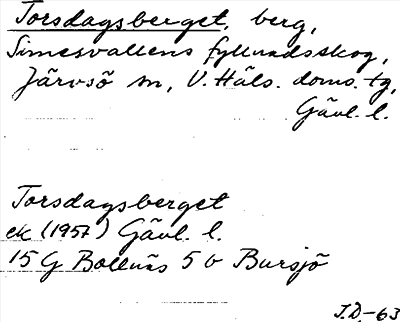 Torsdagsberget, berg,
Simesvallens fyllnadsskog,
Järvsö sn, V. Häls. doms. tg,
Gävl. l.
Torsdagsberget
ek (1957) Gävl. l.
15 G Bollnäs 5 b Bursjö
J.D.-63